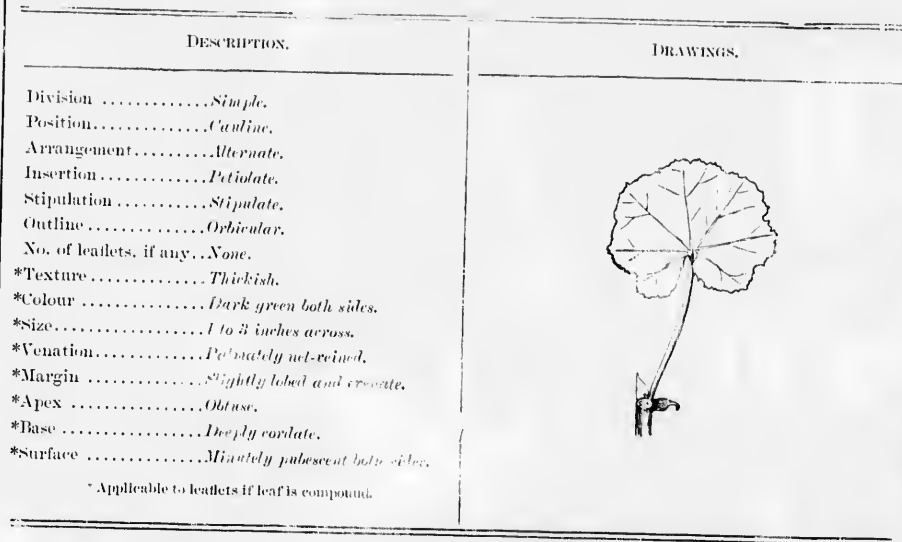 DESCRIPTION.
DRAWINGS.
Division .............Simple.
Position..............Cauline.
Arrangement.........Alternate.
Insertion .............Petiolate.
Stipulation ...........Stipulate.
Outline ...............Orbicular.
No. of leaflets, if any..None.
*Texture ..............Thickish.
*Colour ..............Dark green both sides.
*Size..................1 to 3 inches across.
*Venation.............Palmately net-veined.
*Margin ..............Slightly lobed and crenate.
*Apex ................Obtuse.
*Base .................Deeply cordate.
*Surface ..............Minutely pubescent both sides.
* Applicable to leaflets if leaf is compound.